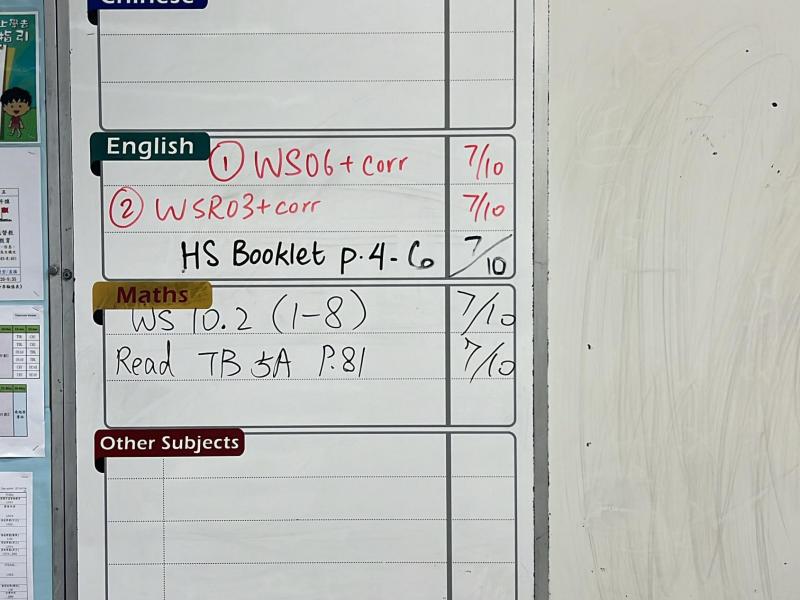 上學去
指引
Chinese
English
① WS06 + corr 7/10
② WSR03 + corr 7/10
HS Booklet p.4-6 7/10
Maths
WS 10.2 (1-8) 7/10
Read TB 5A P.81 7/10
Other Subjects